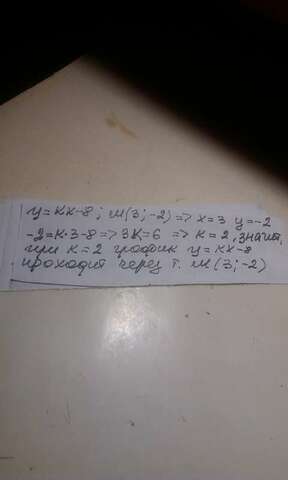 y=кx-8; м(3;-2)=>x=3 y=-2
-2=к·3-8=>3к=6 => к=2, значит,
при к=2 график y=кx-8
проходит через т. м(3;-2)